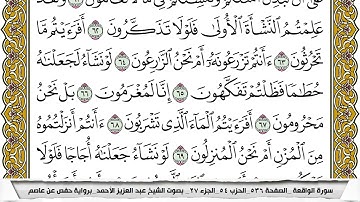 عَلَىٰٓ أَن نُّبَدِّلَ أَمْثَٰلَكُمْ وَنُنشِئَكُمْ فِى مَا لَا تَعْلَمُونَ ٦١ وَلَقَدْ
عَلِمْتُمُ ٱلنَّشْأَةَ ٱلْأُولَىٰ فَلَوْلَا تَذَكَّرُونَ ٦٢ أَفَرَءَيْتُم مَّا
تَحْرُثُونَ ٦٣ ءَأَنتُمْ تَزْرَعُونَهُۥٓ أَمْ نَحْنُ ٱلزَّٰرِعُونَ ٦٤ لَوْ نَشَآءُ لَجَعَلْنَٰهُ
حُطَٰمًا فَظَلْتُمْ تَفَكَّهُونَ ٦٥ إِنَّا لَمُغْرَمُونَ ٦٦ بَلْ نَحْنُ
مَحْرُومُونَ ٦٧ أَفَرَءَيْتُمُ ٱلْمَآءَ ٱلَّذِى تَشْرَبُونَ ٦٨ ءَأَنتُمْ أَنزَلْتُمُوهُ
مِنَ ٱلْمُزْنِ أَمْ نَحْنُ ٱلْمُنزِلُونَ ٦٩ لَوْ نَشَآءُ جَعَلْنَٰهُ أُجَاجًا فَلَوْلَا
سورة الواقعة_الصفحة ٥٣٦_الحزب ٥٤_الجزء ٢٧_ بصوت الشيخ عبد العزيز الاحمد_برواية حفص عن عاصم